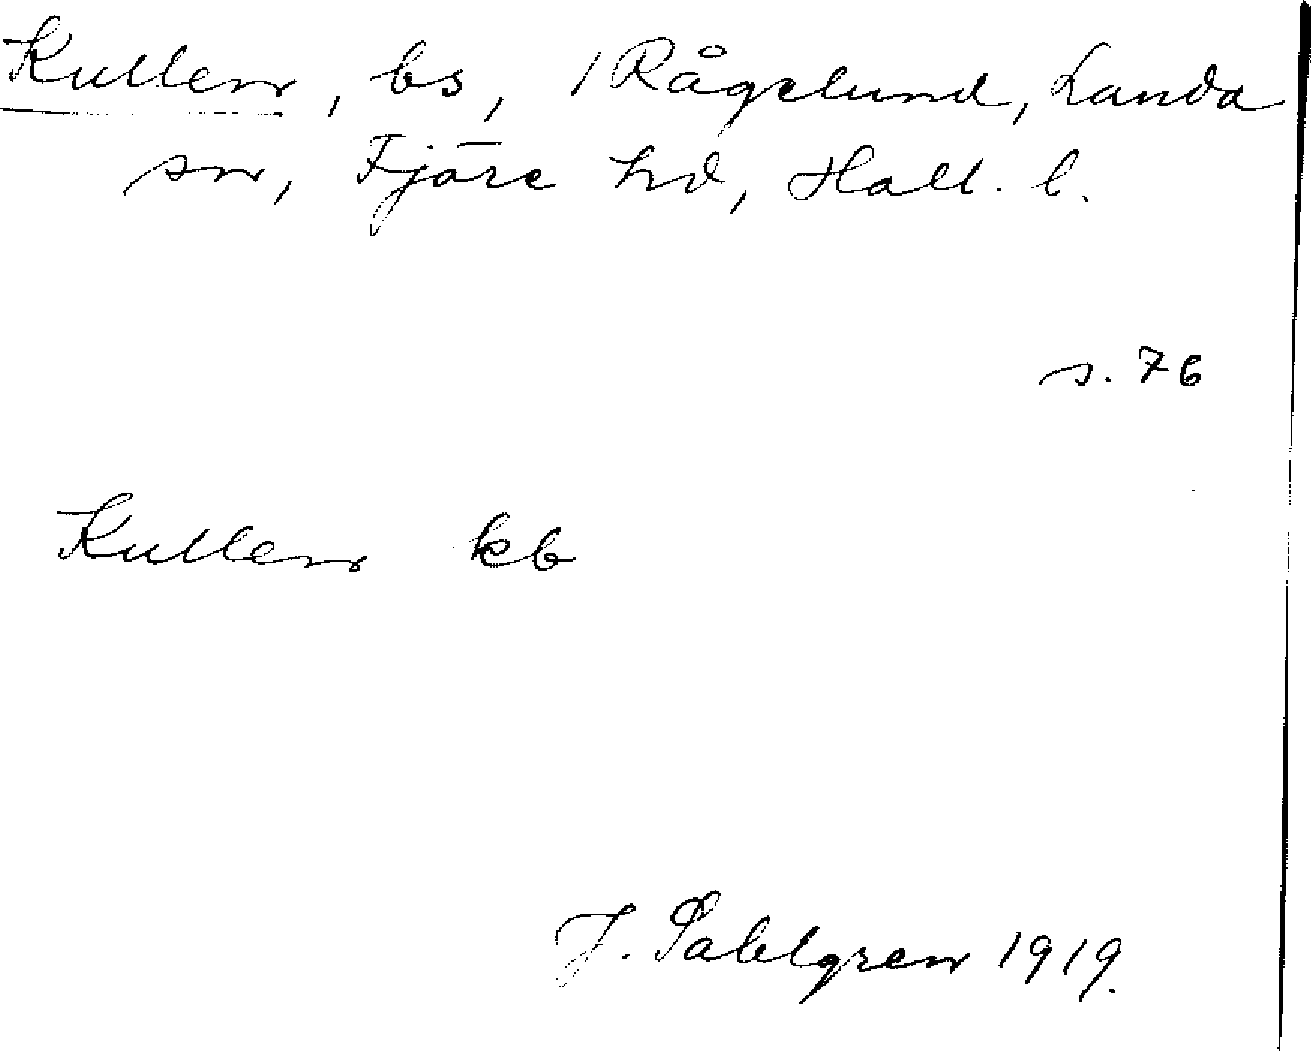 Kullen, bs, / Rågelund, Landa
sn, Fjäre hd, Hall. l.
s. 76
Kullen kb
J. Sahlgren 1919.